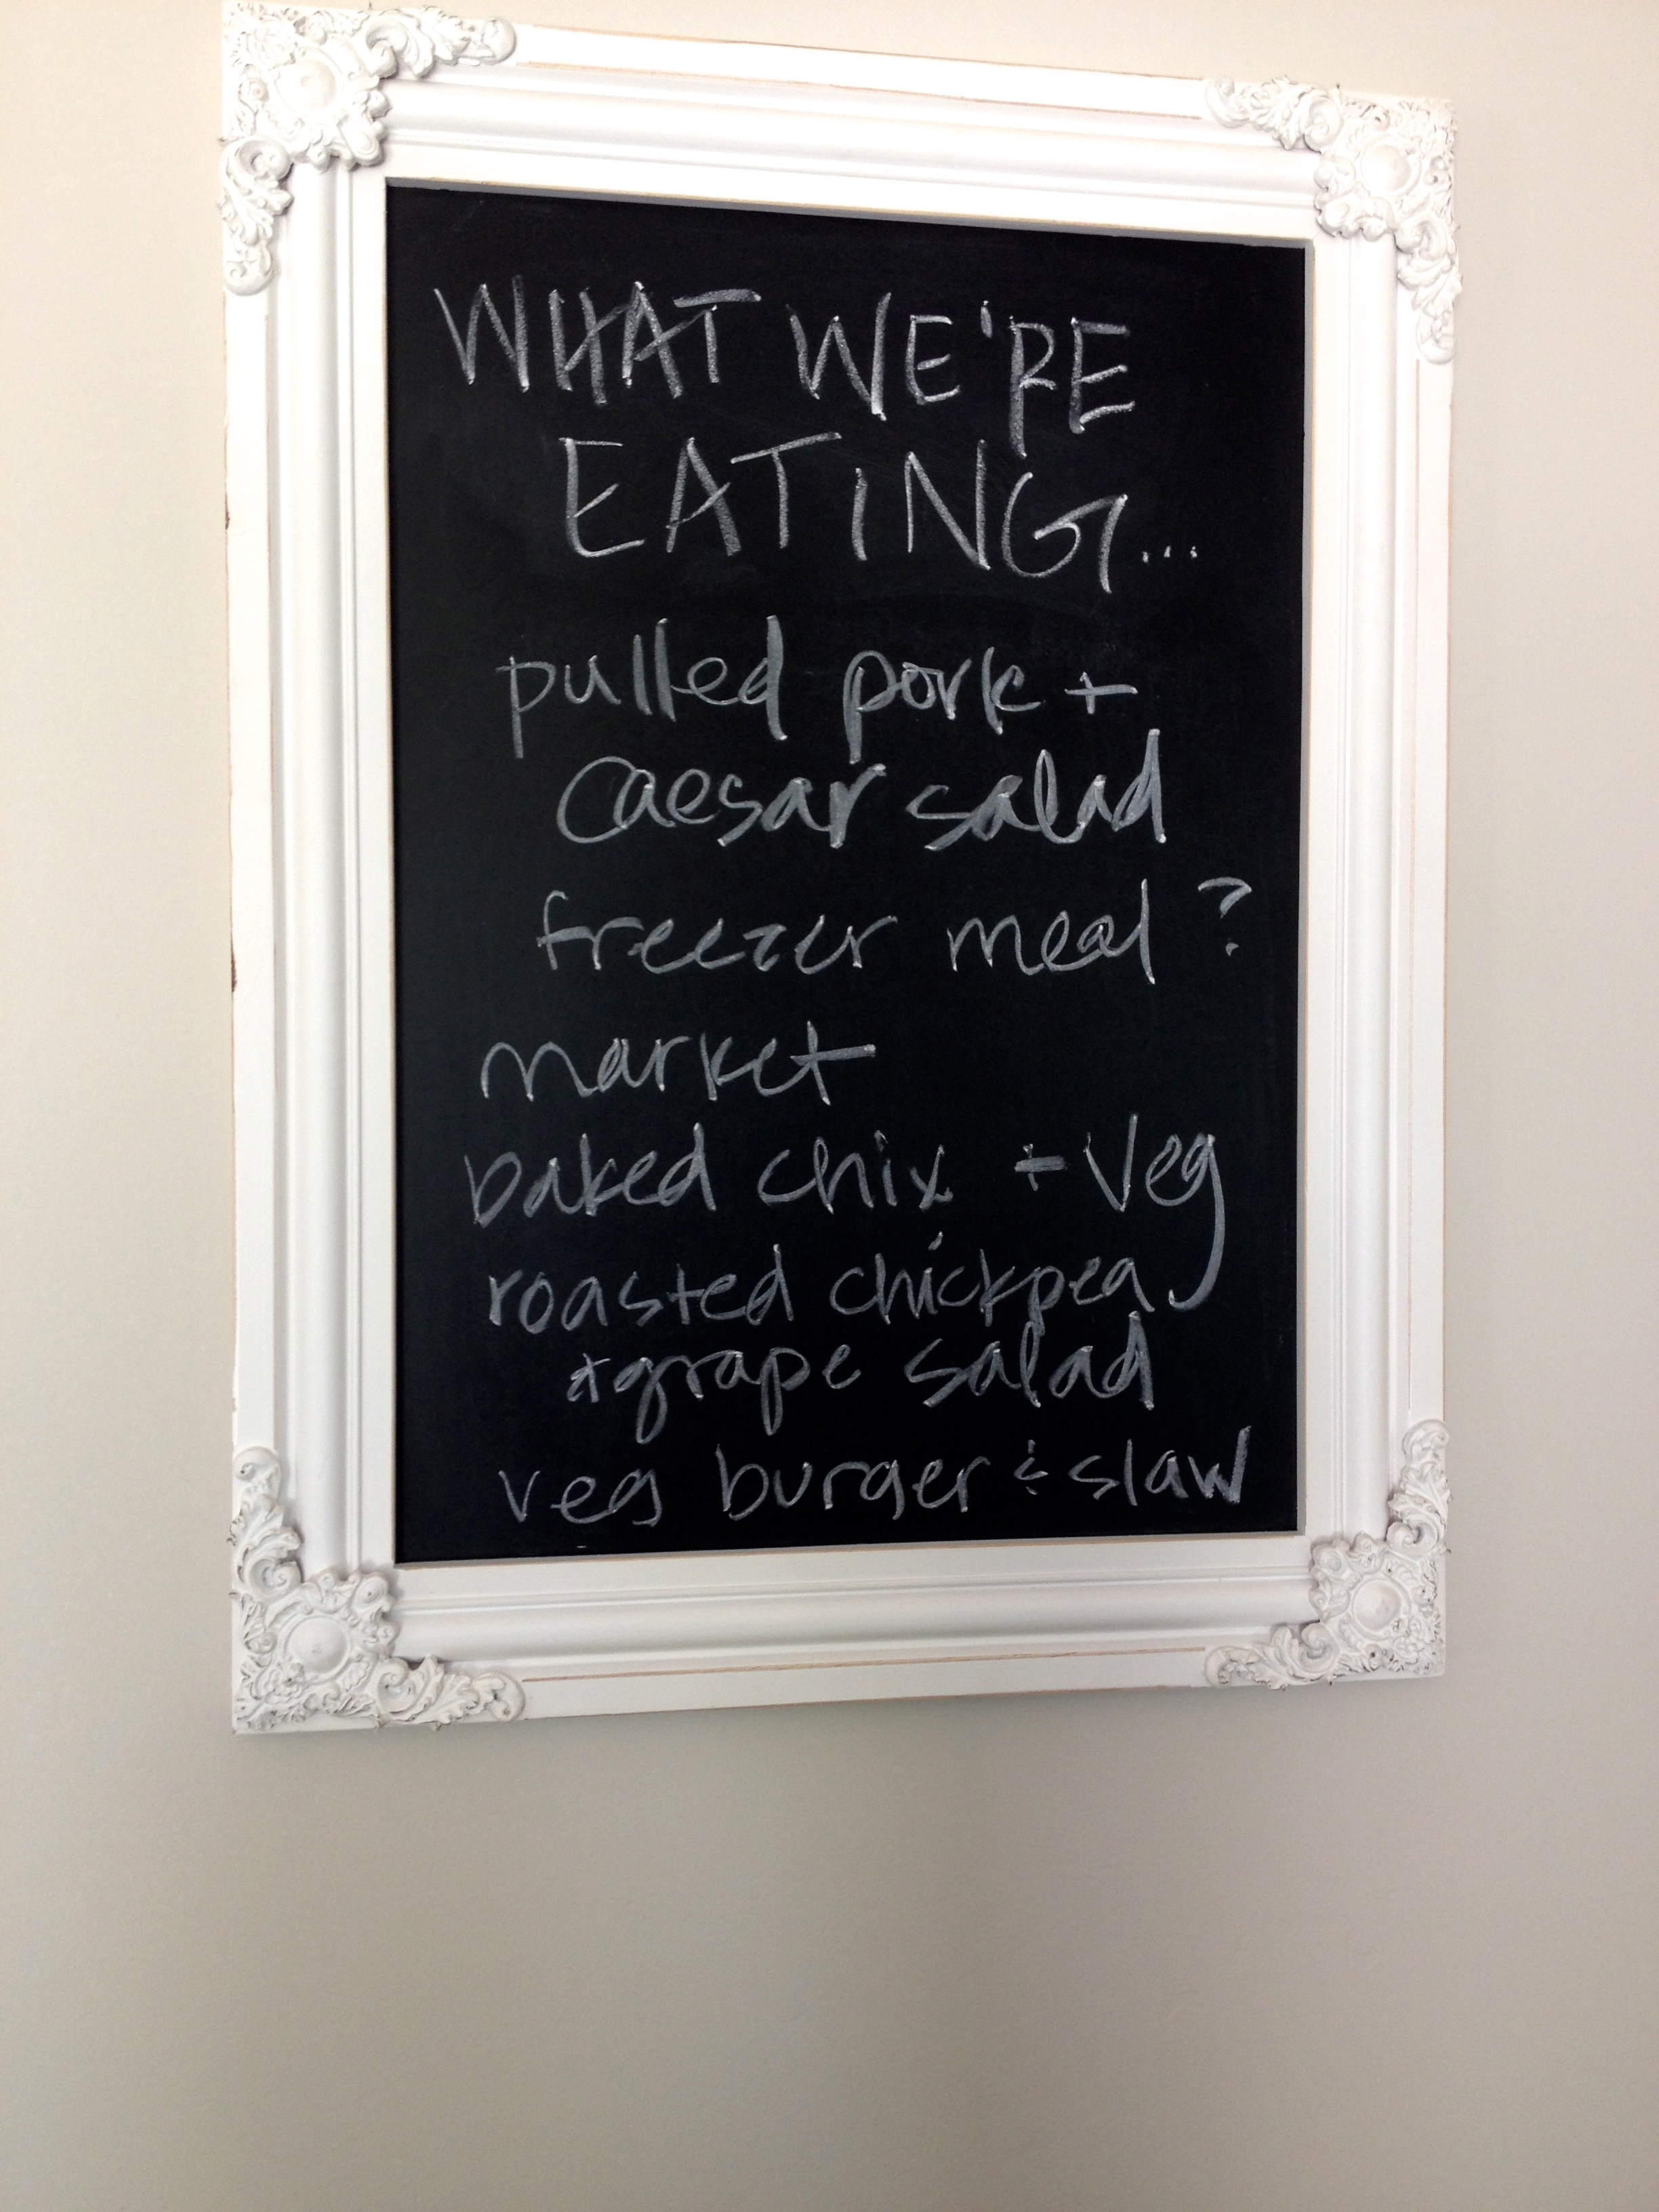 WHAT WE'RE
EATING...
pulled pork +
Caesar salad
freezer meal ?
market
baked chix + veg
roasted chickpea
+ grape salad
veg burger & slaw